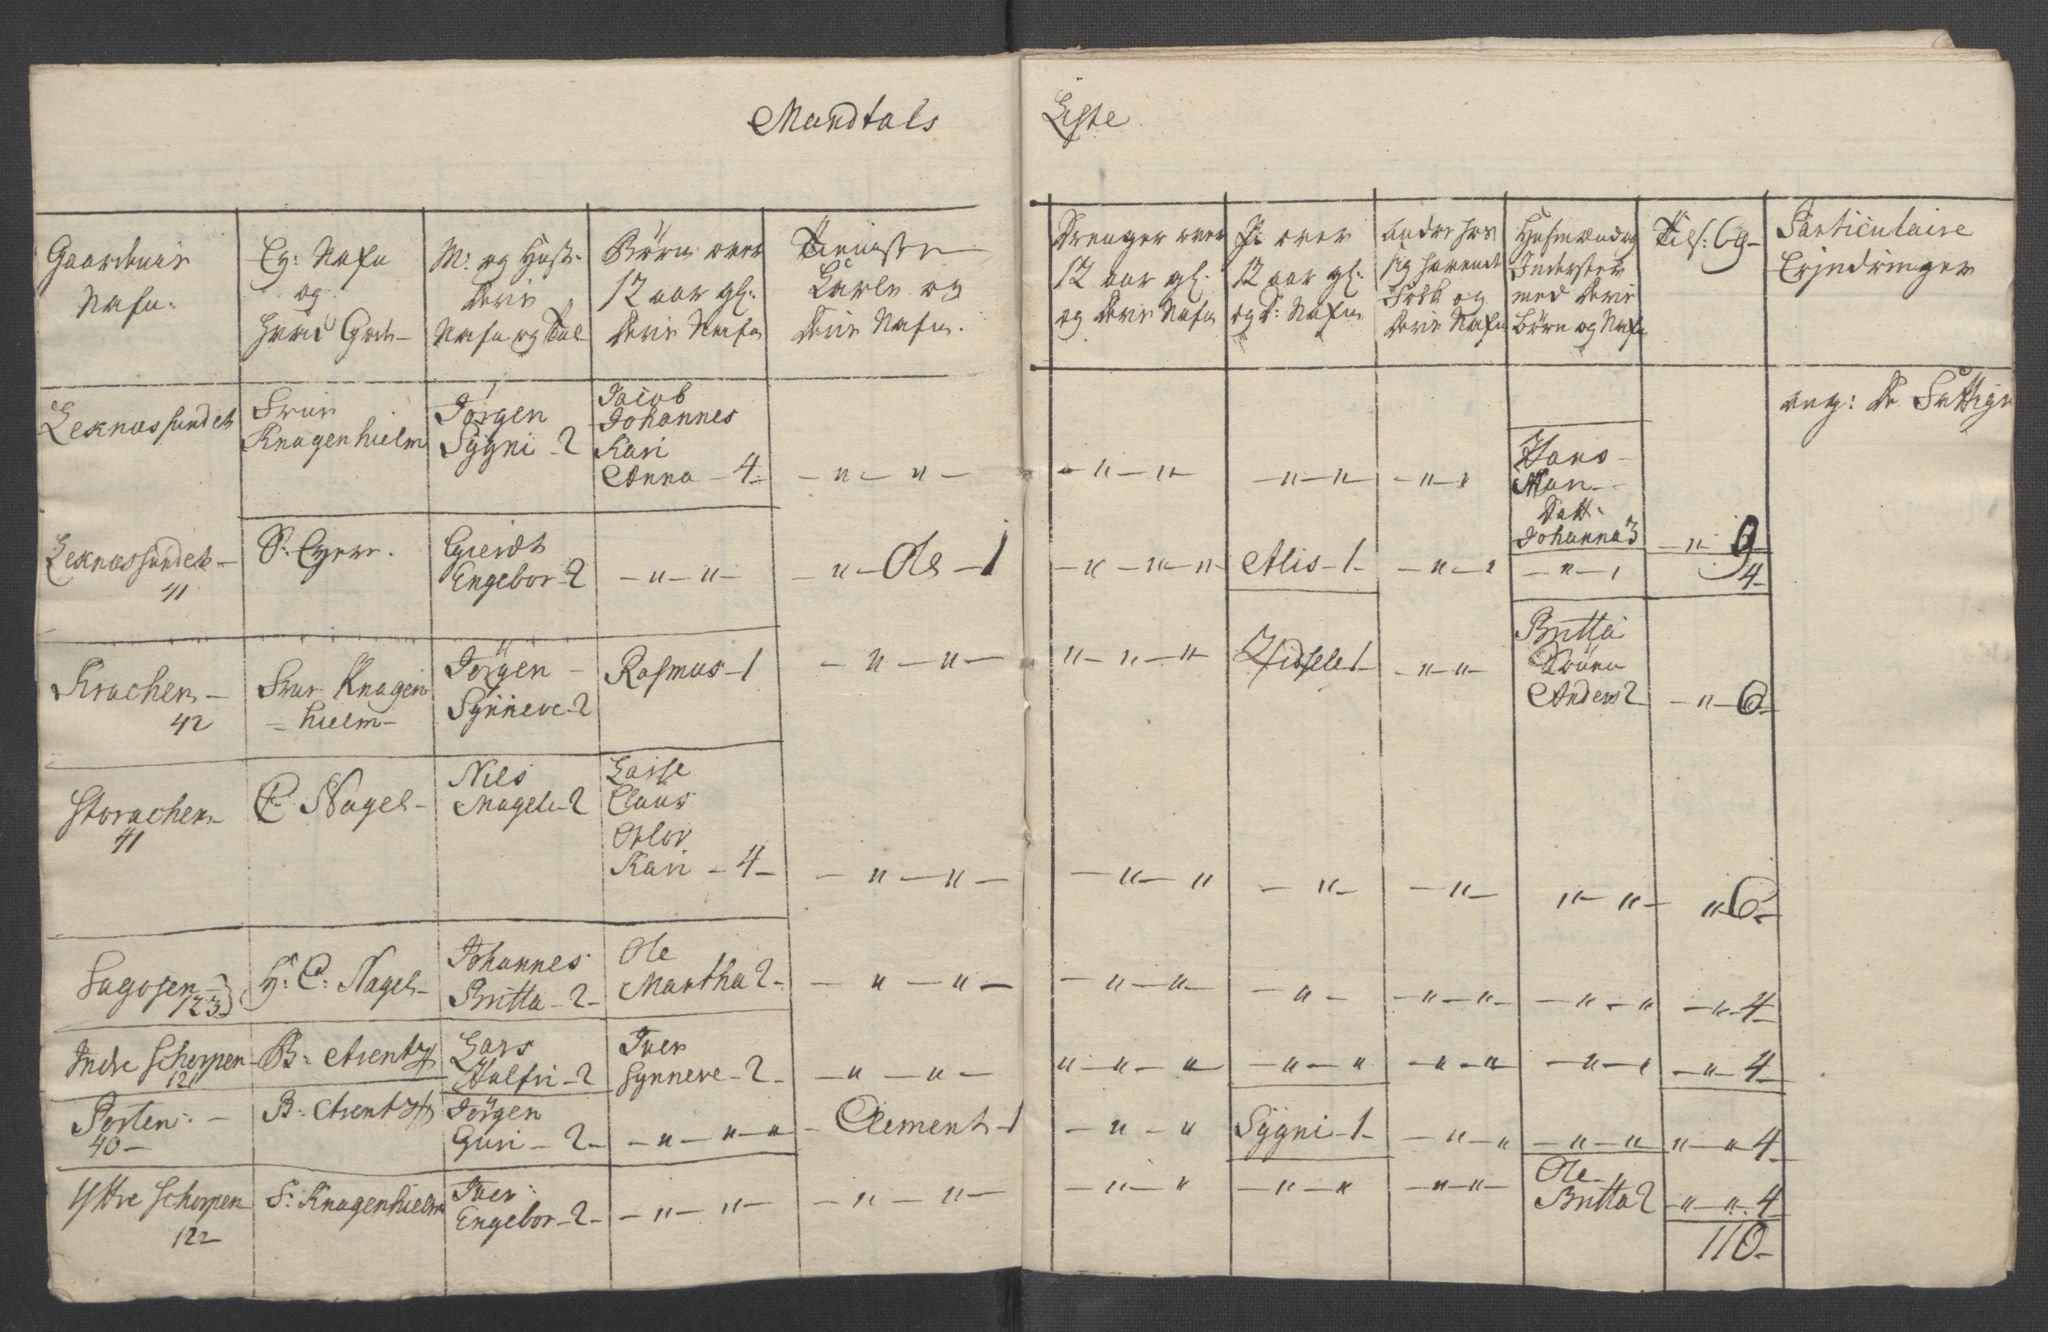 Mandtals Liste
Gaardenis
Nafn.
Ey: Nafn
og
hvad Gods
M: og Hust:
Deris
Nafn og Tal
Børn over
12 aar gl:
Deris Nafn
Tieniste
Karle og
Deris Nafn.
Drenger over
12 aar gl:
og Deris Nafn
P: over
12 aar gl:
og D: Nafn
Andre hos
sig havende
Folk og
Deris Nafn
Husmænd og
Inderster
med Deris
børn og Nafn
Particulaire
Erindringer
Lexnæssundet
Frue
Knagenhielm
Jørgen
Sygni - 2
Jacob
Johannes
Kari
Anna - 4
- " - " -
- " - "
- " - "
- " - "
Hans
Mari
Datt:
Johanna 3
- " - 9
ang: De Fattige
Lexnæssundet -
41
S: Eyere.
Gierdt
Engebor - 2
- " - " -
- " - Ole - 1
- " - " - "
Alis - 1 -
- " - "
- " -
4 -
Krachen -
42
Frue Knagen
- hielm -
Jörgen -
Synneve - 2
Rasmus - 1
- " - " -
" - " - "
Zidsele 1 -
- " - "
Britta
Anders 2
- " - 6 -
Storachen -
41
C: Nagel -
Nils
Magele - 2
Lasse
Claus
Otlov
Kari - 4 -
- " - " -
- " - "
- " -
- " -
" - " -
" - 6 -
Sagosen -
123
H: C: Nagel -
Johannes
Britta - 2 -
Ole
Martha 2 -
- " - " -
- " - "
- " -
- " - " -
- " - "
- " - 4 -
Indre Schorpen
121
B: Arentz
Lars
Halfri - 2
Iver
Synneve - 2 -
- " - " -
" - " - "
- " - "
- " - "
- " - "
- " - 4 -
Porten: -
40 -
B: Arentz
Jörgen
Guri - 2 -
- " - " - "
- Clement - 1
- " - "
Sygni - 1 -
- " - "
- " - "
" - " 4 -
Ystre Schorpen
122
F: Knagenhielm
Iver:
Engebor - 2 -
- " - " -
- " - " -
- " - "
- " - "
- " - " -
Ole
Britta 2
- " - " 4 -
110 -